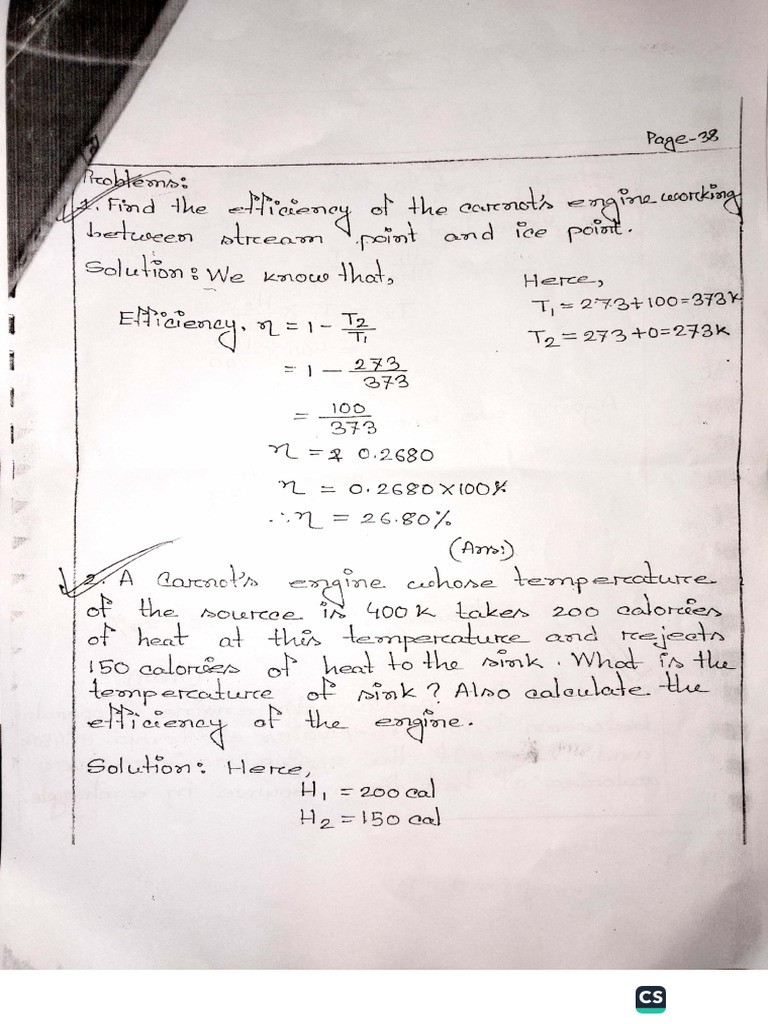 Page-38
Problems:
1. Find the efficiency of the carnot's engine working
between stream point and ice point.
Solution: We know that,
Here,
T₁ = 273+100=373K
Efficiency, η = 1 - T₂/T₁
T₂ = 273+0=273K
= 1 - 273/373
= 100/373
η = 0.2680
η = 0.2680×100%
∴η = 26.80%
(Ans:)
2. A Carnot's engine whose temperature
of the source is 400K takes 200 calories
of heat at this temperature and rejects
150 calories of heat to the sink. What is the
temperature of sink? Also calculate the
efficiency of the engine.
Solution: Here,
H₁ = 200 cal
H₂ = 150 cal
CS